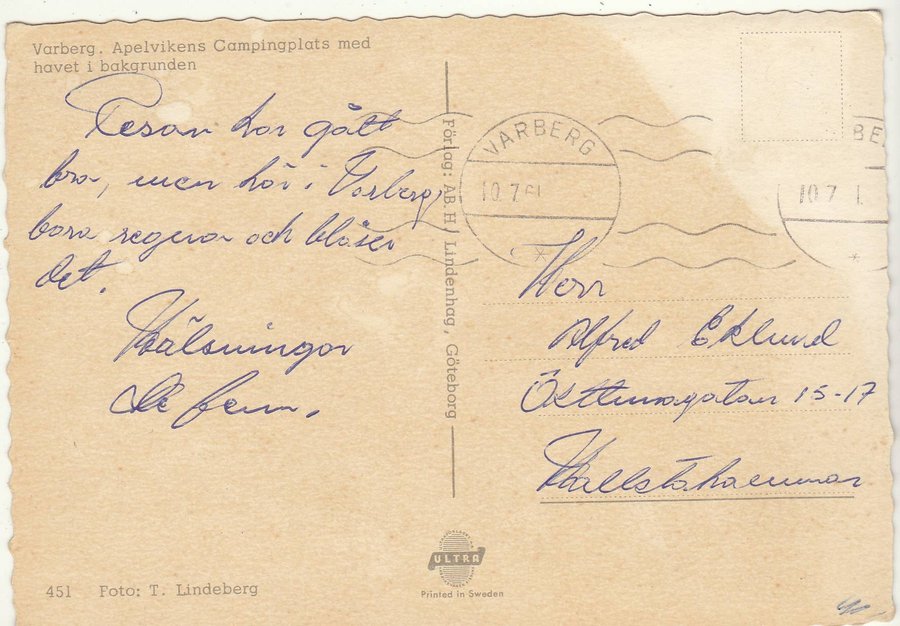 Varberg. Apelvikens Campingplats med
havet i bakgrunden
Resan har gått
bra, men här i Varberg
bara regnar och blåser
det.
Hälsningar
De fem.
Förlag: AB. H/ Lindenhag, Göteborg
VARBERG
10.7.61
BE
10.7 1.
Herr
Alfred Eklund
15-17
Hallstahammar
ULTRA
Printed in Sweden
451 Foto: T. Lindeberg